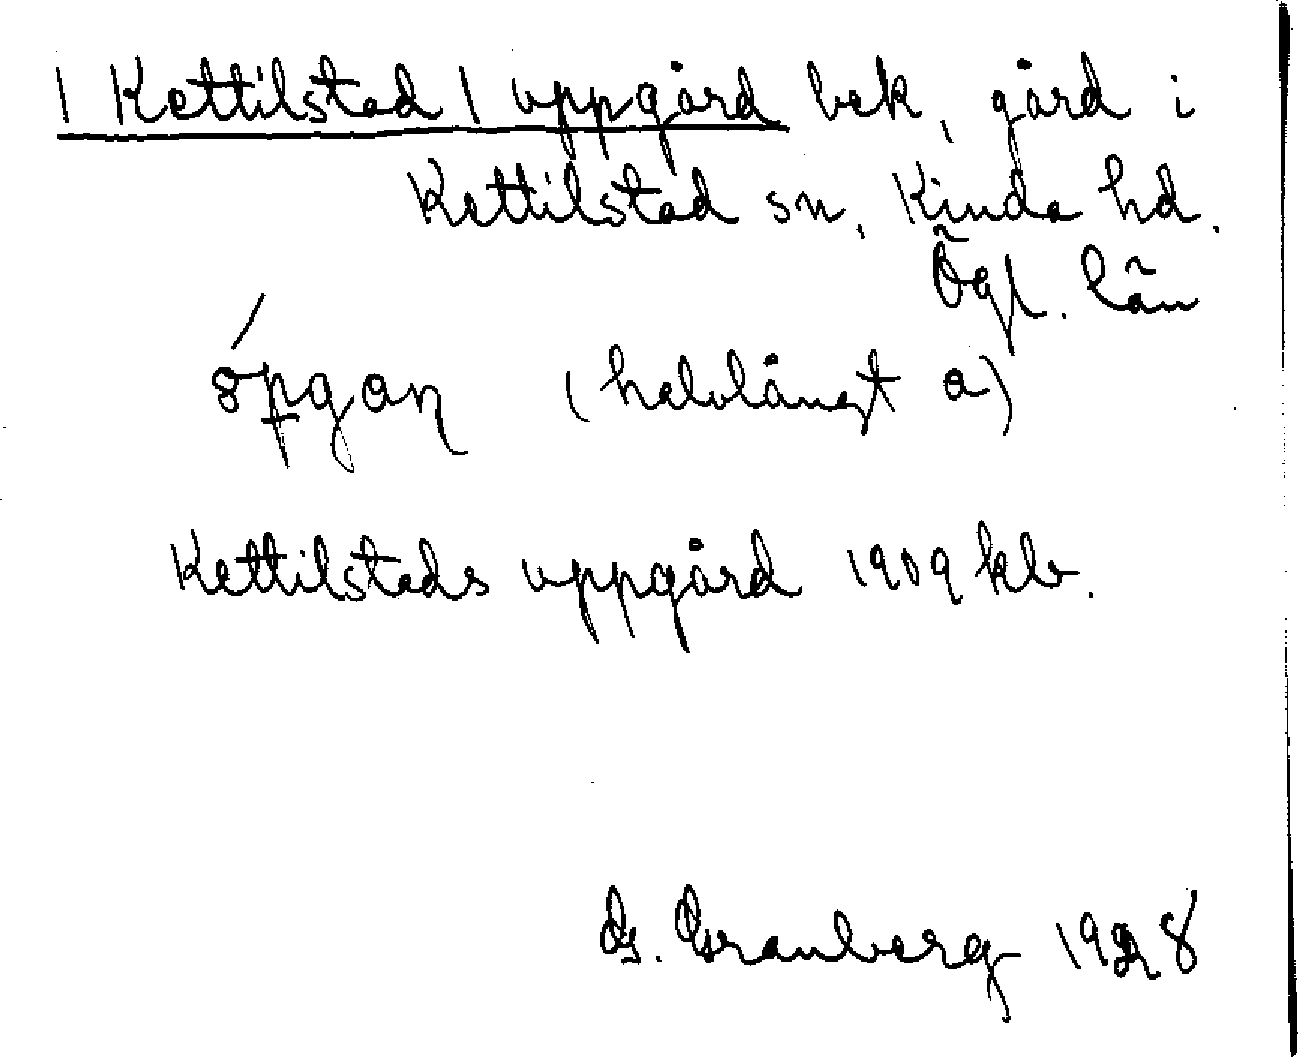 | Kettilstad | uppgård bek, gård i
Kettilstad sn, Kinda hd.
Ögl. län
ópgaɳ (halvlångt a)
Kettilstads uppgård 1909 klr.
G. Granberg 1928